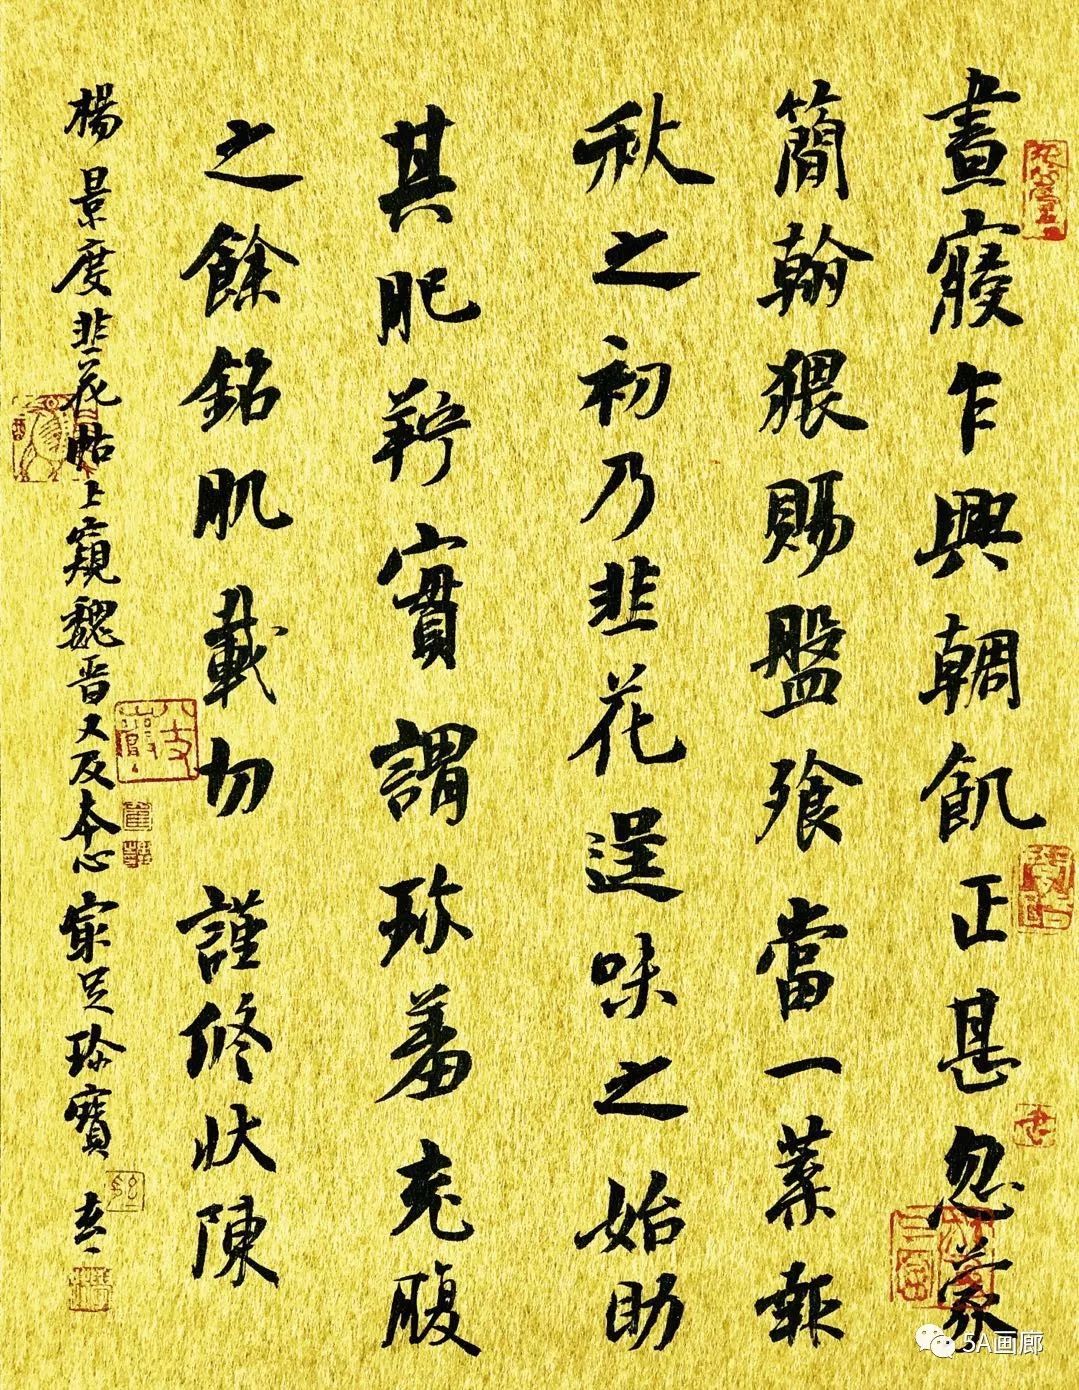 晝寢乍興輖飢正甚忽蒙
簡翰猥賜盤飧當一葉報
秋之初乃韭花逞味之始助
其肥羜實謂珍羞充腹
之餘銘肌載切謹修狀陳
楊景度韭花帖上窺魏晉又反本心宲足珍寶
5A画廊